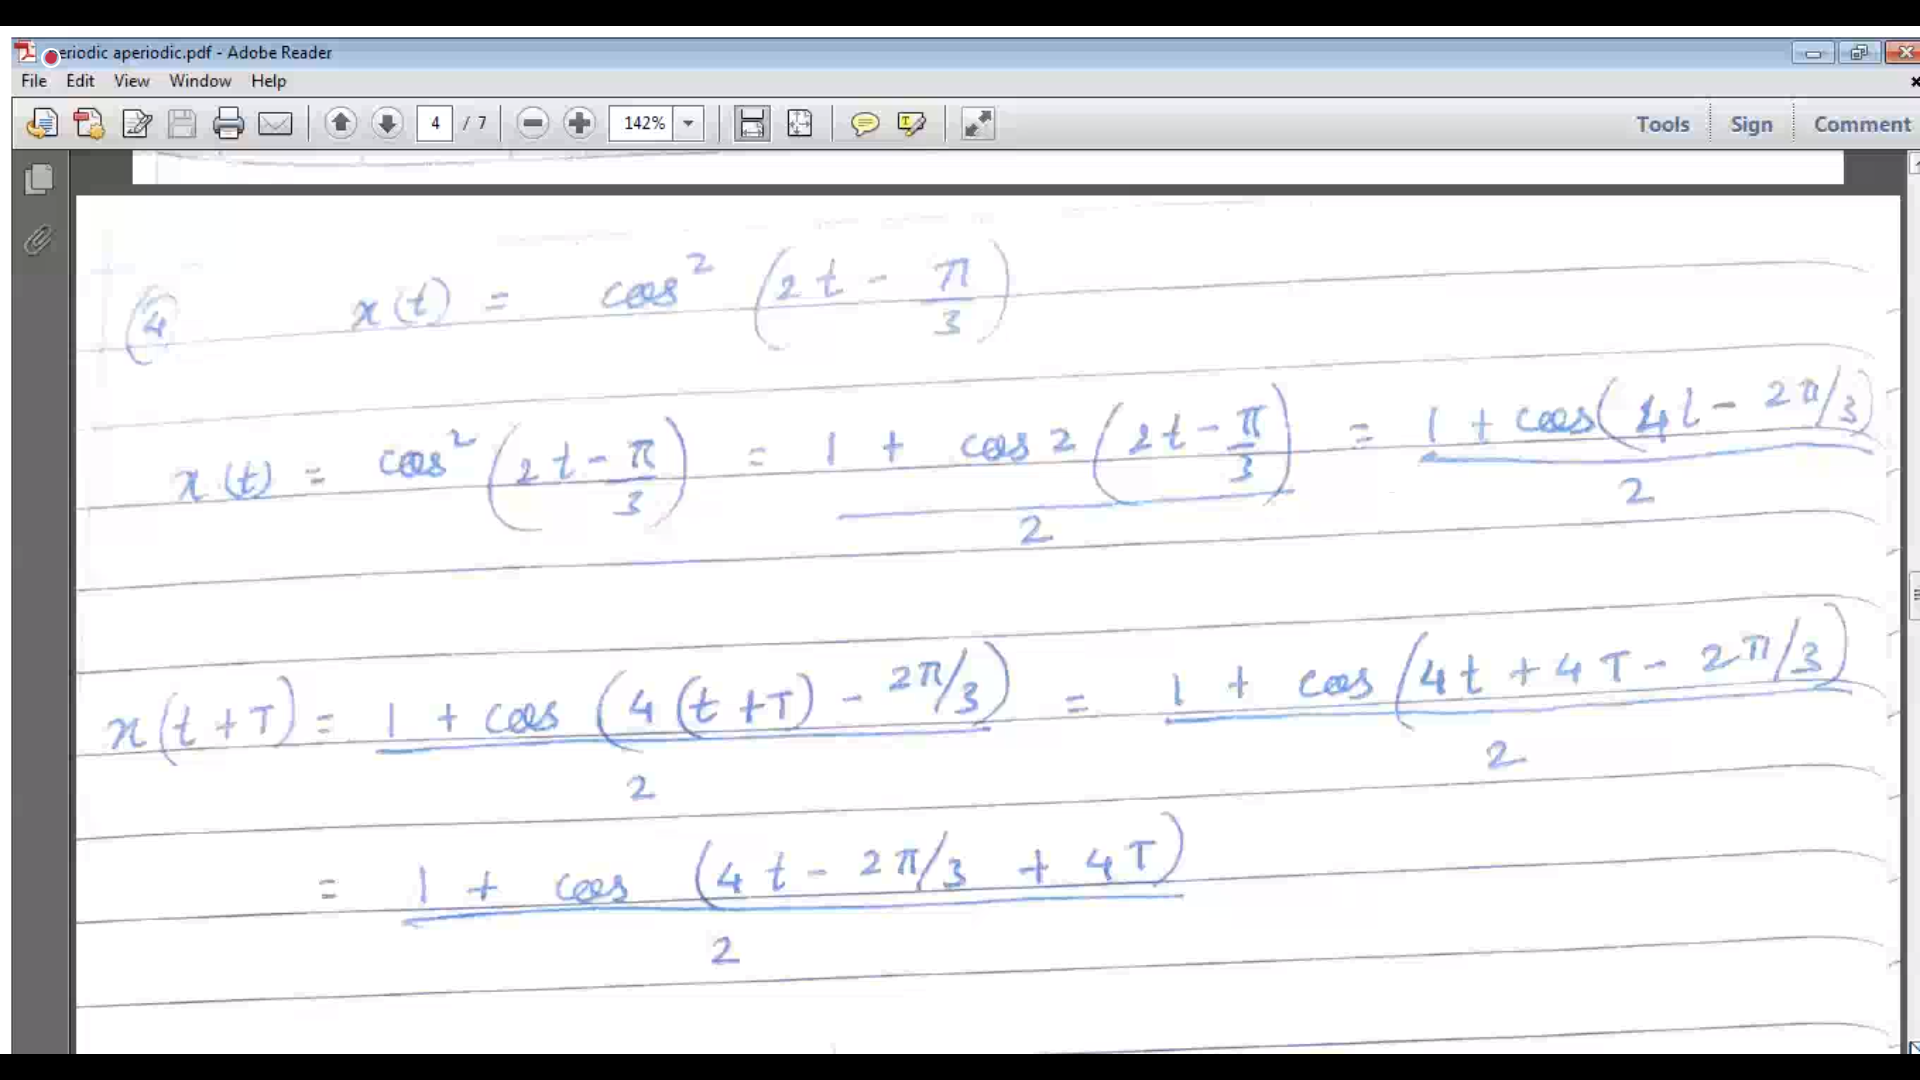 eriodic aperiodic.pdf - Adobe Reader
File Edit View Window Help
4 / 7 142% Tools Sign Comment
(4 x(t) = cos² (2t - π/3)
x(t) = cos² (2t - π/3) = 1 + cos 2 (2t - π/3) / 2 = 1 + cos (4t - 2π/3) / 2
x(t+T) = 1 + cos (4 (t+T) - 2π/3) / 2 = 1 + cos (4t + 4T - 2π/3) / 2
= 1 + cos (4t - 2π/3 + 4T) / 2